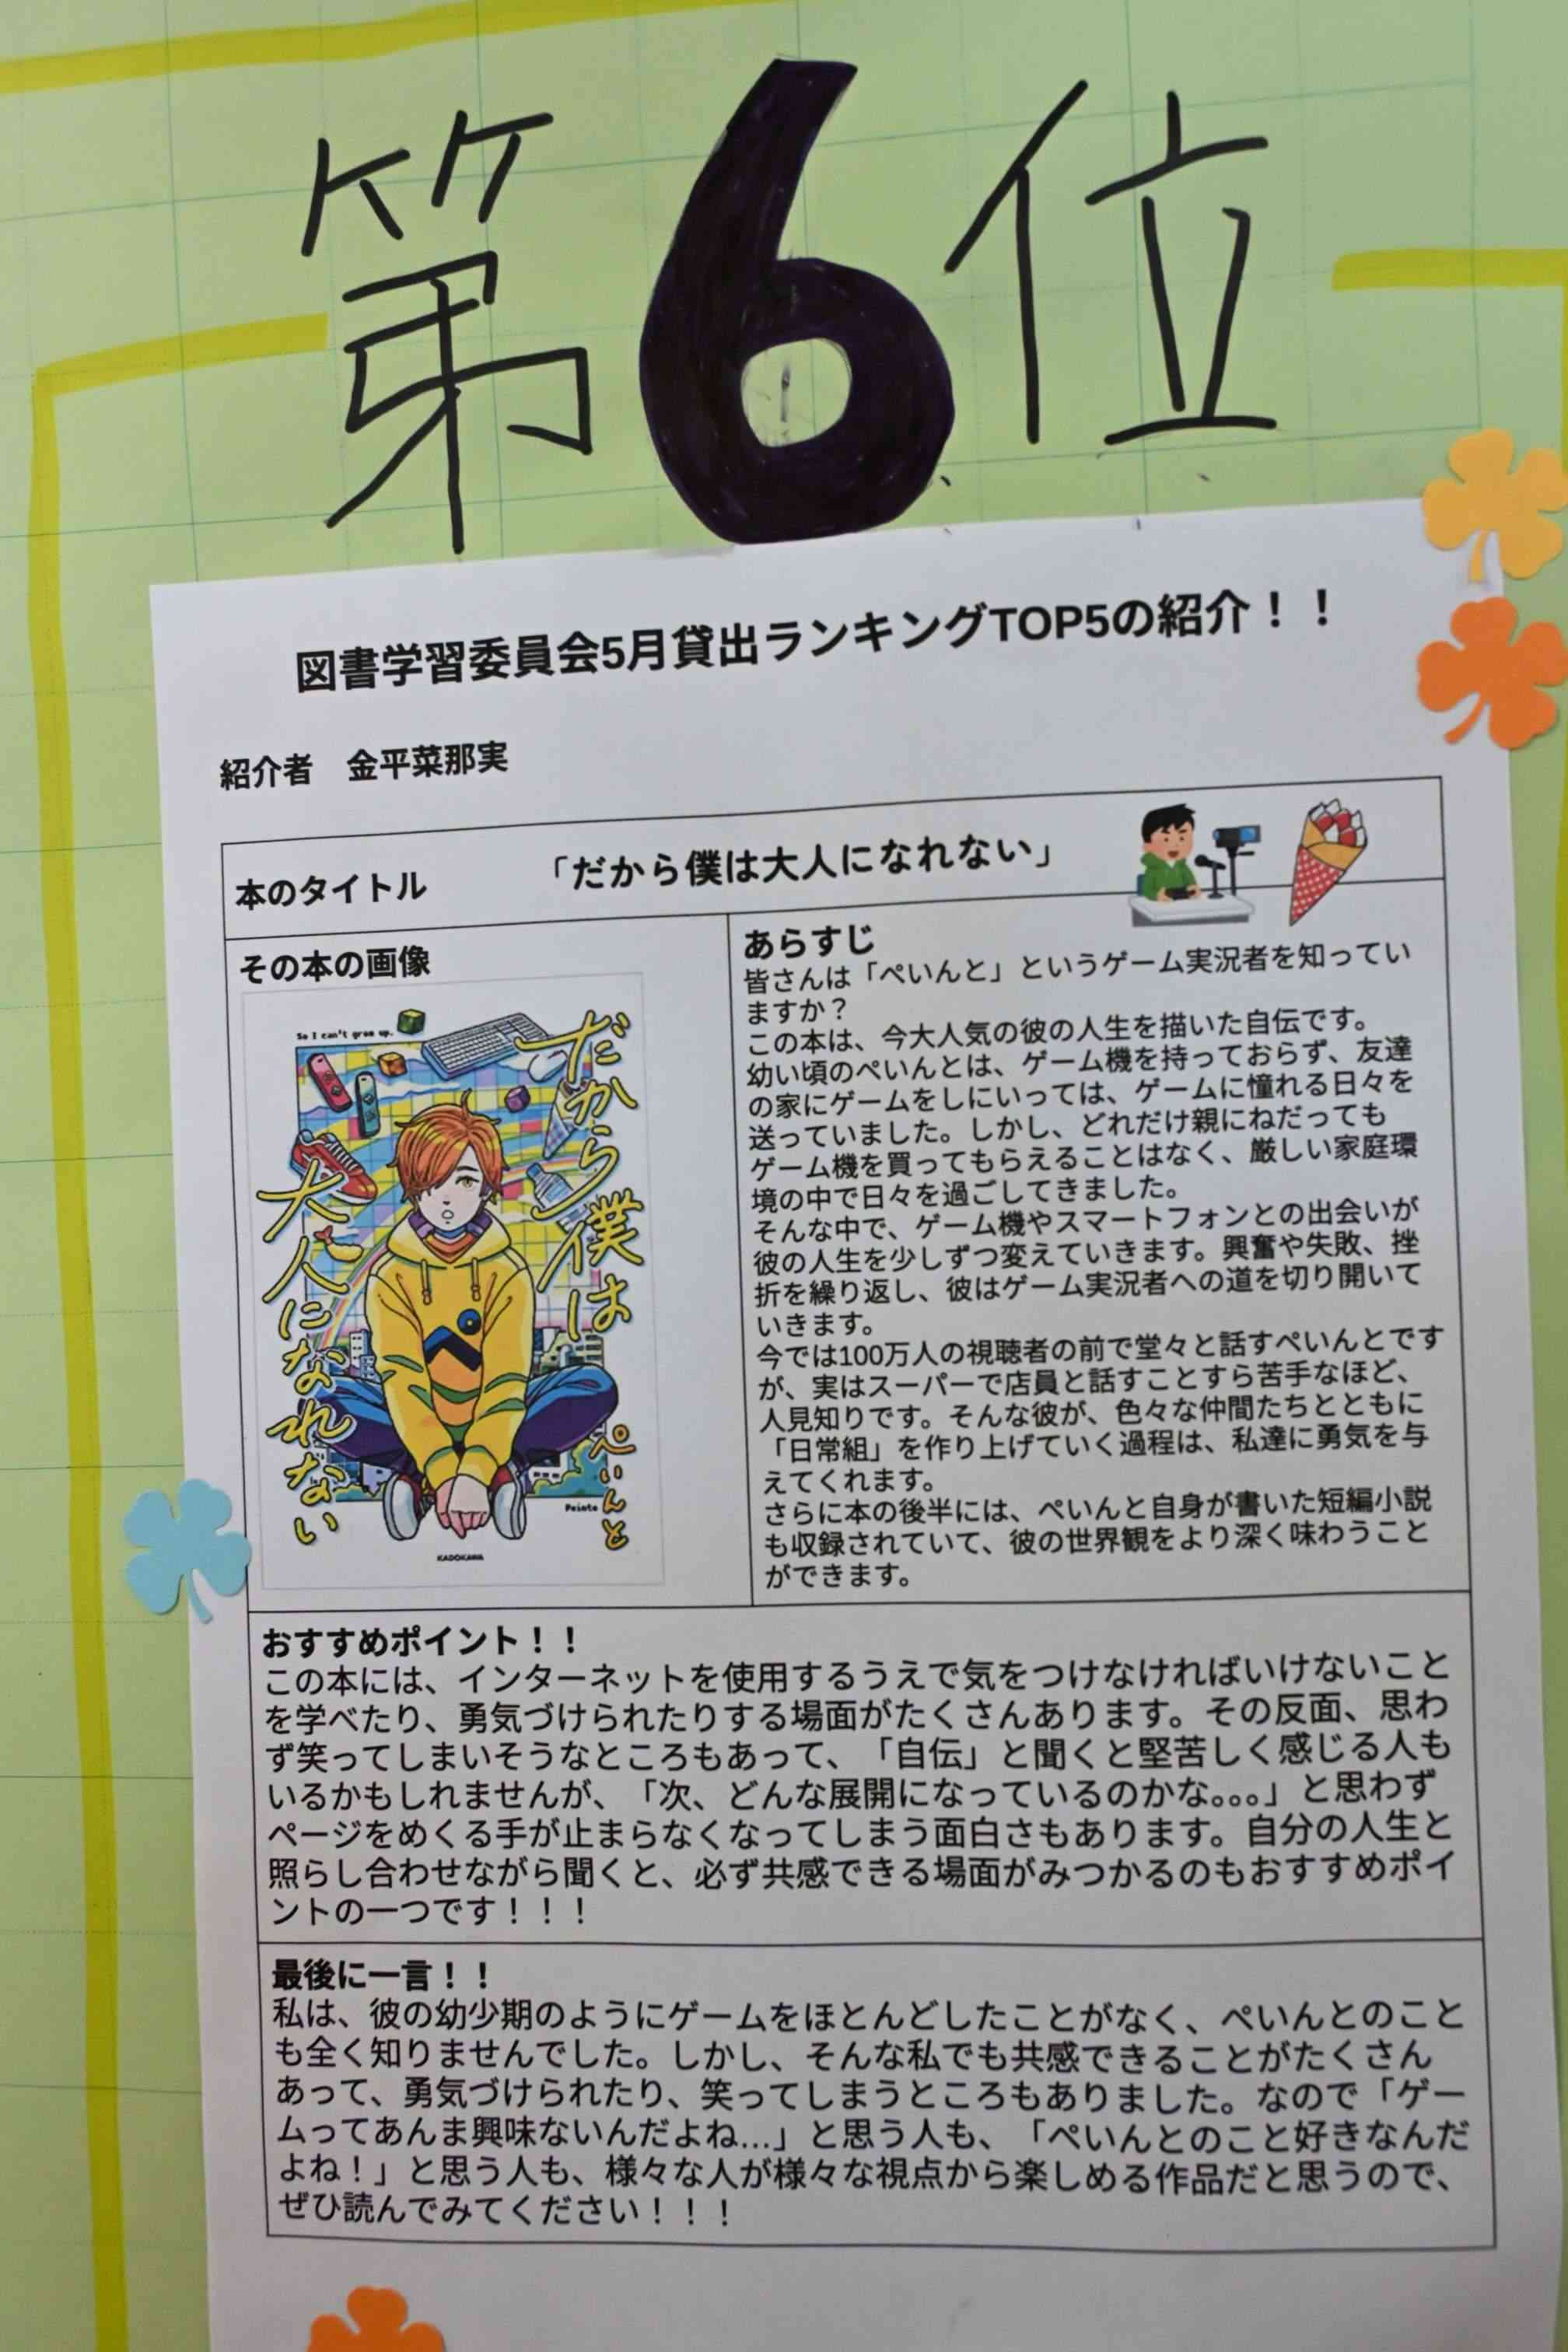 第6位
図書学習委員会5月貸出ランキングTOP5の紹介！！
紹介者　金平菜那実
本のタイトル　「だから僕は大人になれない」
その本の画像
So I can't grow up.
だから僕は
大人になれない
ぺいんと
Peinto
KADOKAWA
あらすじ
皆さんは「ぺいんと」というゲーム実況者を知ってい
ますか？
この本は、今大人気の彼の人生を描いた自伝です。
幼い頃のぺいんとは、ゲーム機を持っておらず、友達
の家にゲームをしにいっては、ゲームに憧れる日々を
送っていました。しかし、どれだけ親にねだっても
ゲーム機を買ってもらえることはなく、厳しい家庭環
境の中で日々を過ごしてきました。
そんな中で、ゲーム機やスマートフォンとの出会いが
彼の人生を少しずつ変えていきます。興奮や失敗、挫
折を繰り返し、彼はゲーム実況者への道を切り開いて
いきます。
今では100万人の視聴者の前で堂々と話すぺいんとです
が、実はスーパーで店員と話すことすら苦手なほど、
人見知りです。そんな彼が、色々な仲間たちとともに
「日常組」を作り上げていく過程は、私達に勇気を与
えてくれます。
さらに本の後半には、ぺいんと自身が書いた短編小説
も収録されていて、彼の世界観をより深く味わうこと
ができます。
おすすめポイント！！
この本には、インターネットを使用するうえで気をつけなければいけないこと
を学べたり、勇気づけられたりする場面がたくさんあります。その反面、思わ
ず笑ってしまいそうなところもあって、「自伝」と聞くと堅苦しく感じる人も
いるかもしれませんが、「次、どんな展開になっているのかな。。。」と思わず
ページをめくる手が止まらなくなってしまう面白さもあります。自分の人生と
照らし合わせながら聞くと、必ず共感できる場面がみつかるのもおすすめポイ
ントの一つです！！！
最後に一言！！
私は、彼の幼少期のようにゲームをほとんどしたことがなく、ぺいんとのこと
も全く知りませんでした。しかし、そんな私でも共感できることがたくさん
あって、勇気づけられたり、笑ってしまうところもありました。なので「ゲー
ムってあんま興味ないんだよね…」と思う人も、「ぺいんとのこと好きなんだ
よね！」と思う人も、様々な人が様々な視点から楽しめる作品だと思うので、
ぜひ読んでみてください！！！